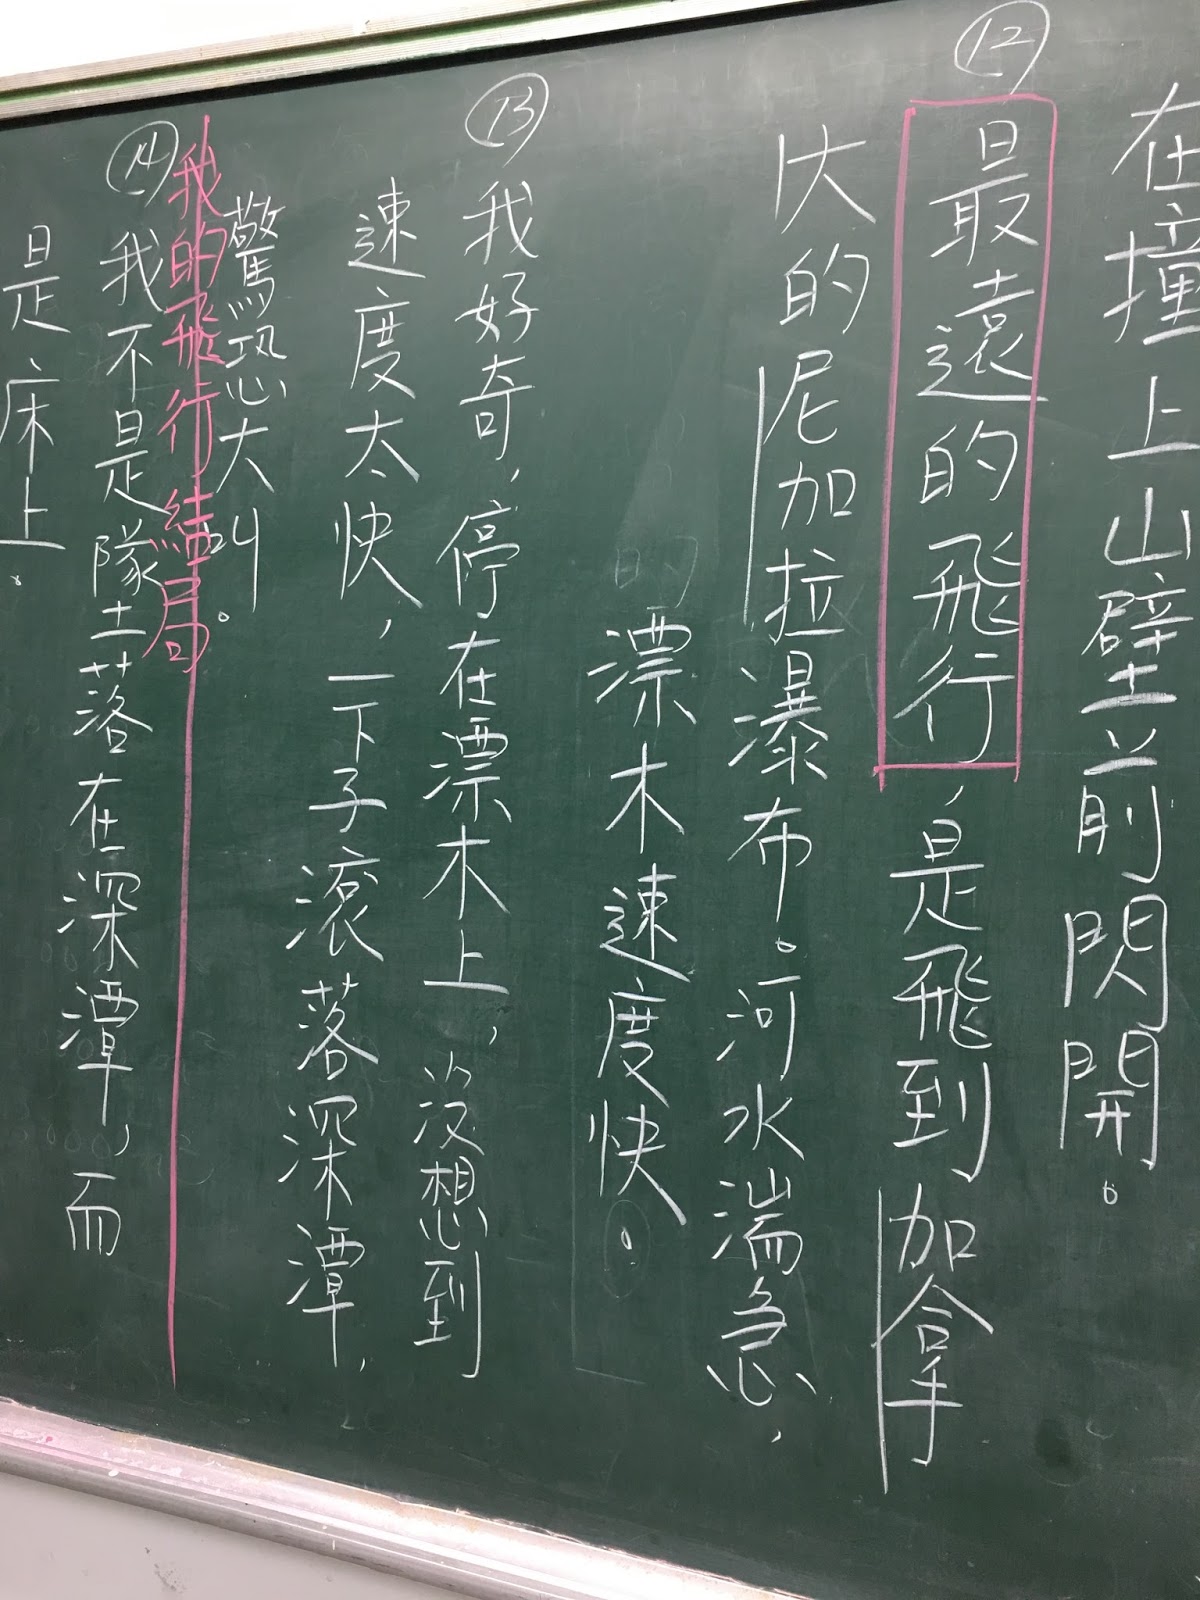 在撞上山壁前閃開。
⑫
最遠的飛行，是飛到加拿
大的尼加拉瀑布。河水湍急，
的漂木速度快。
⑬
我好奇，停在漂木上，沒想到
速度太快，一下子滾落深潭，
驚恐大叫。
我的飛行結局
⑭
我不是墜落在深潭，而
是床上。